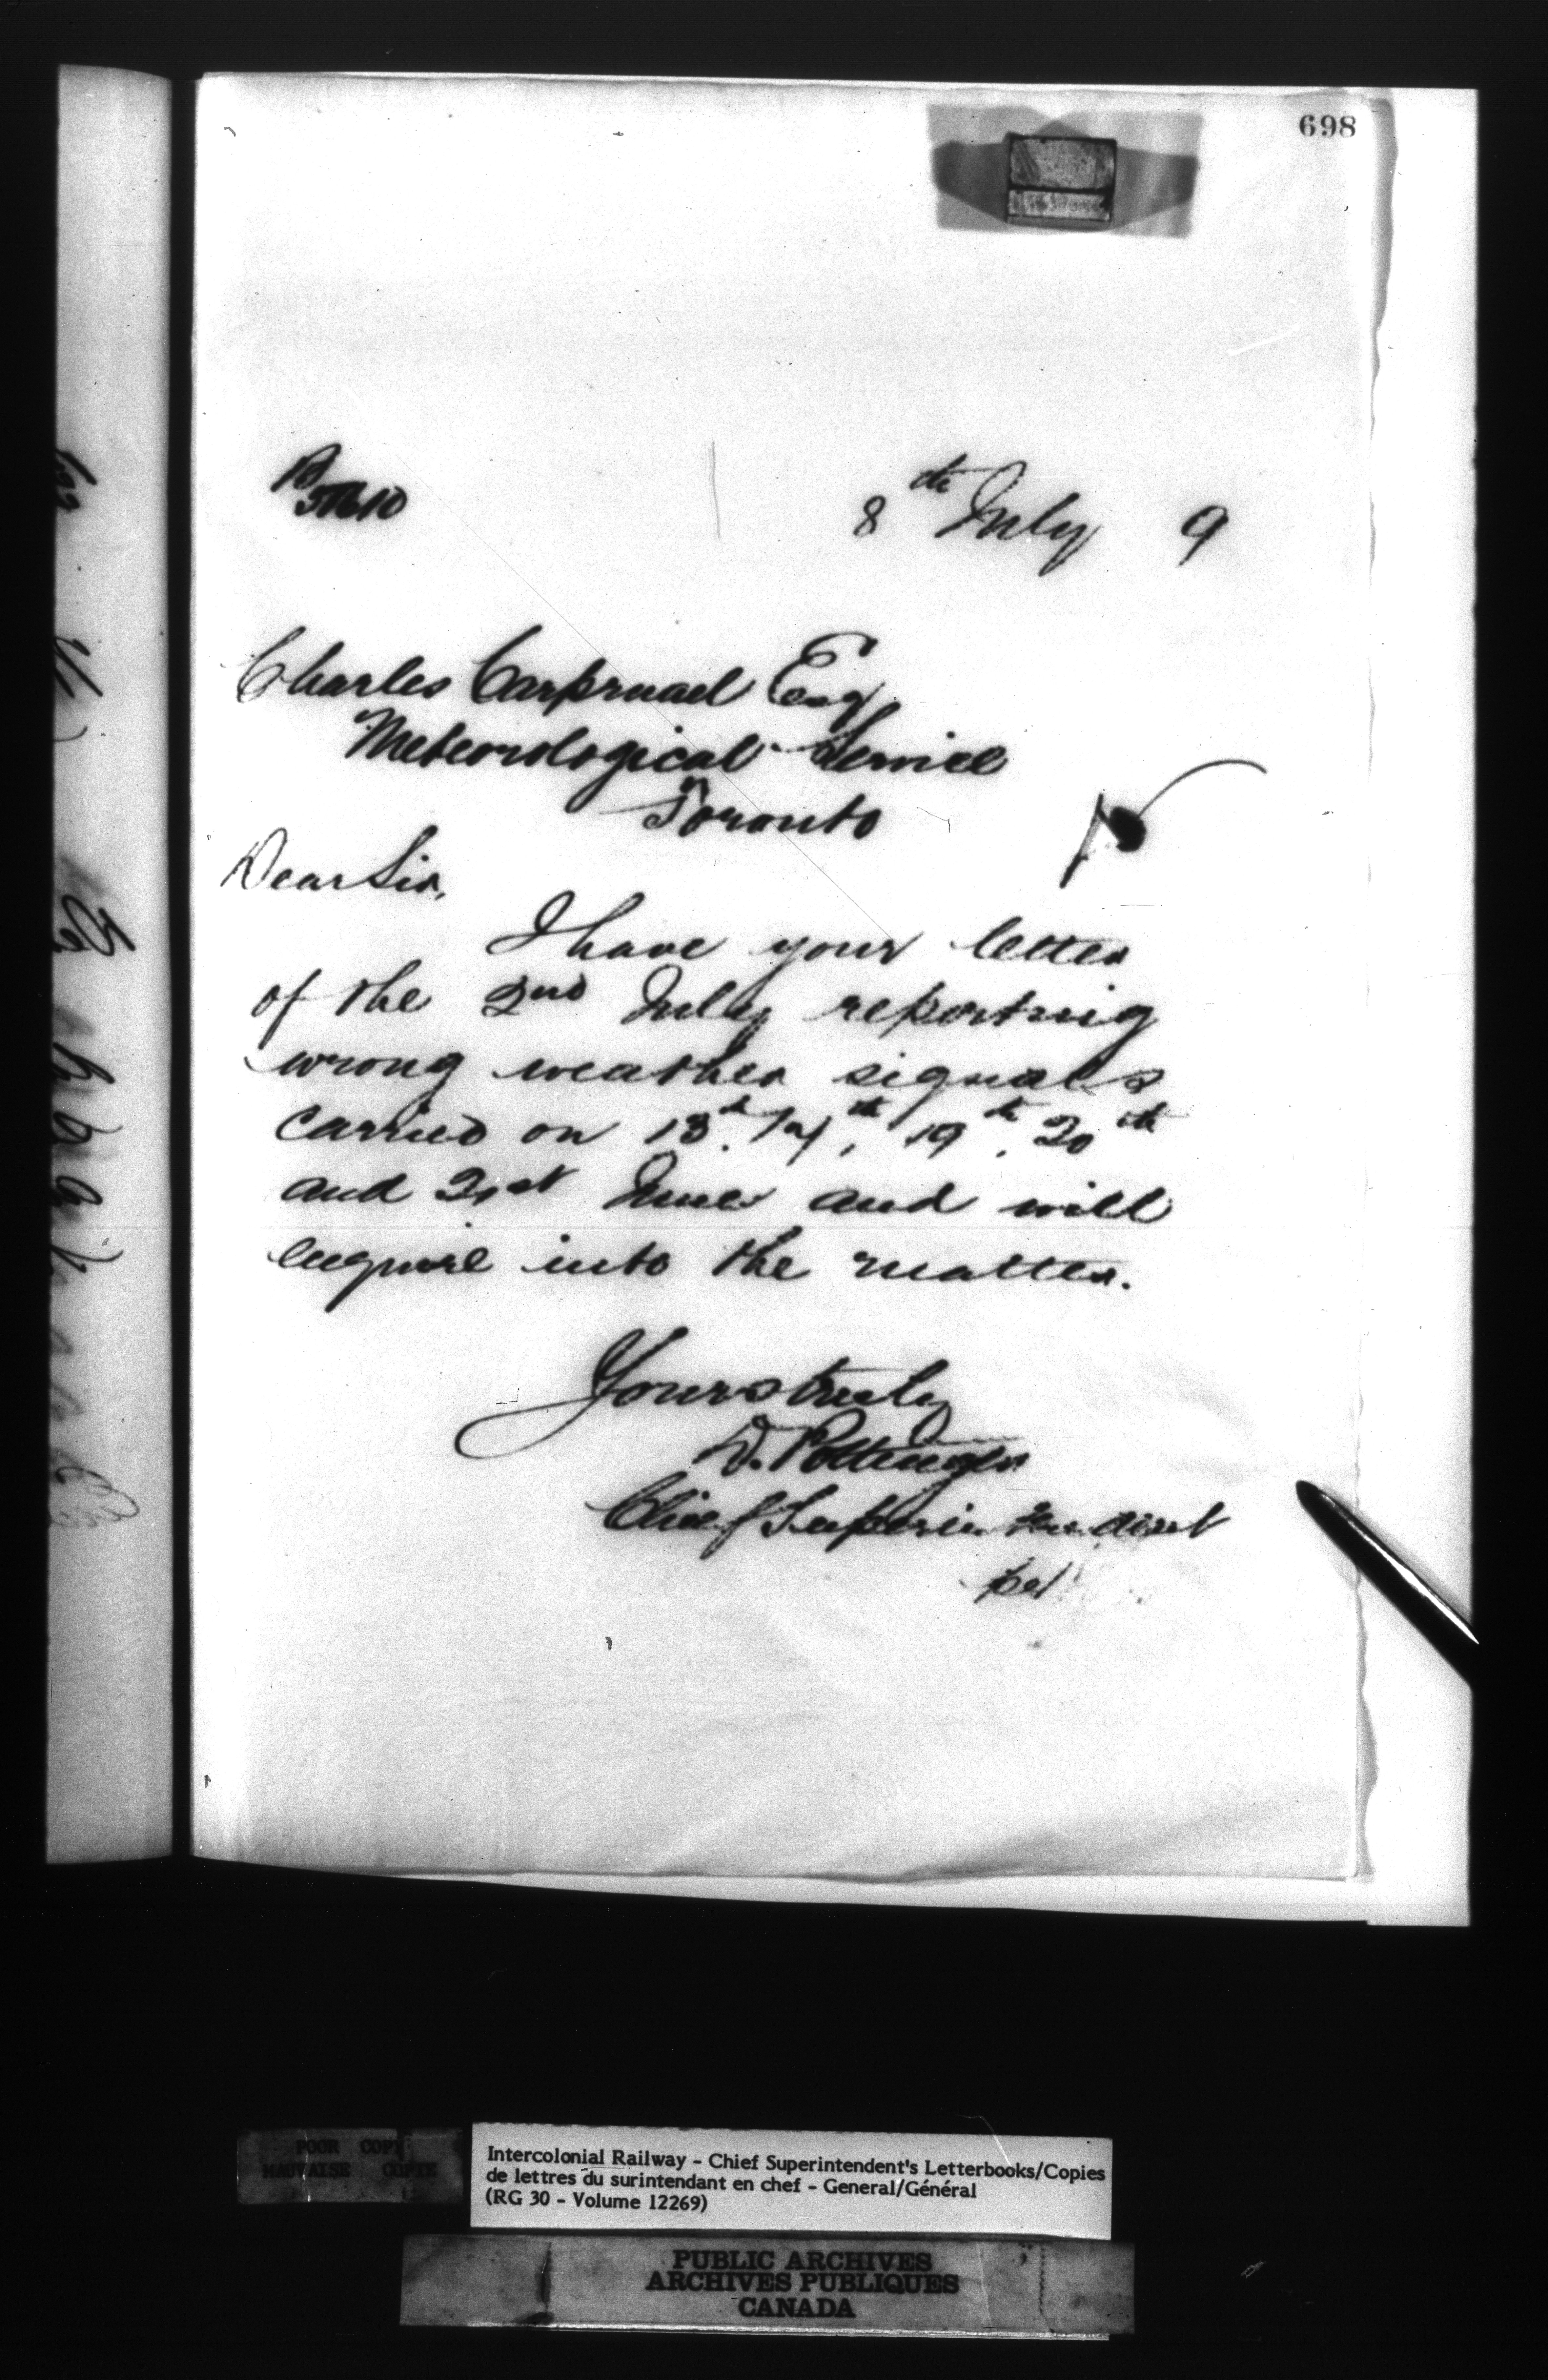 698
8th July 9
Charles Carpmael Esq
Meteorological Service
Toronto
Dear Sir,
I have your letter
of the 2nd July reporting
wrong weather signals
carried on 13th. 14th, 19th, 20th
and 21st June and will
enquire into the matter.
Yours truly
D. Pottinger
Chief Superintendent
per
POOR COPY
MAUVAISE COPIE
Intercolonial Railway - Chief Superintendent's Letterbooks/Copies
de lettres du surintendant en chef - General/Général
(RG 30 - Volume 12269)
PUBLIC ARCHIVES
ARCHIVES PUBLIQUES
CANADA